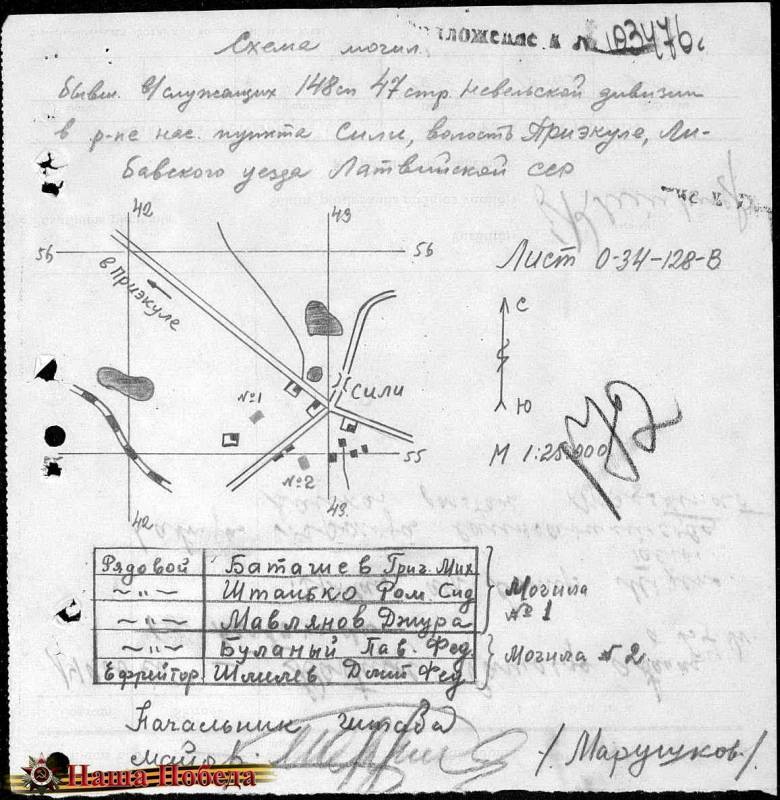 Приложение к № 103476с
Схема могил
бывш. в/служащих 148сп 47стр. Невельской дивизии
в р-не нас. пункта Сили, волость Приэкуле, Ли-
бавского уезда Латвийской ССР
42 43
56 56
в Приэкуле
Лист 0-34-128-В
С
Ю
Сили
№1
М 1:25.000
172
55
№2
42 43.
Рядовой Баташев Григ. Мих
〃 Штанько Ром. Сид
〃 Мавлянов Джура
Могила
№1
〃 Буланый Пав. Фед.
Ефрейтор Шмилев Дмит Фед
Могила №2
Начальник штаба
майор /Марушков/
Наша Победа